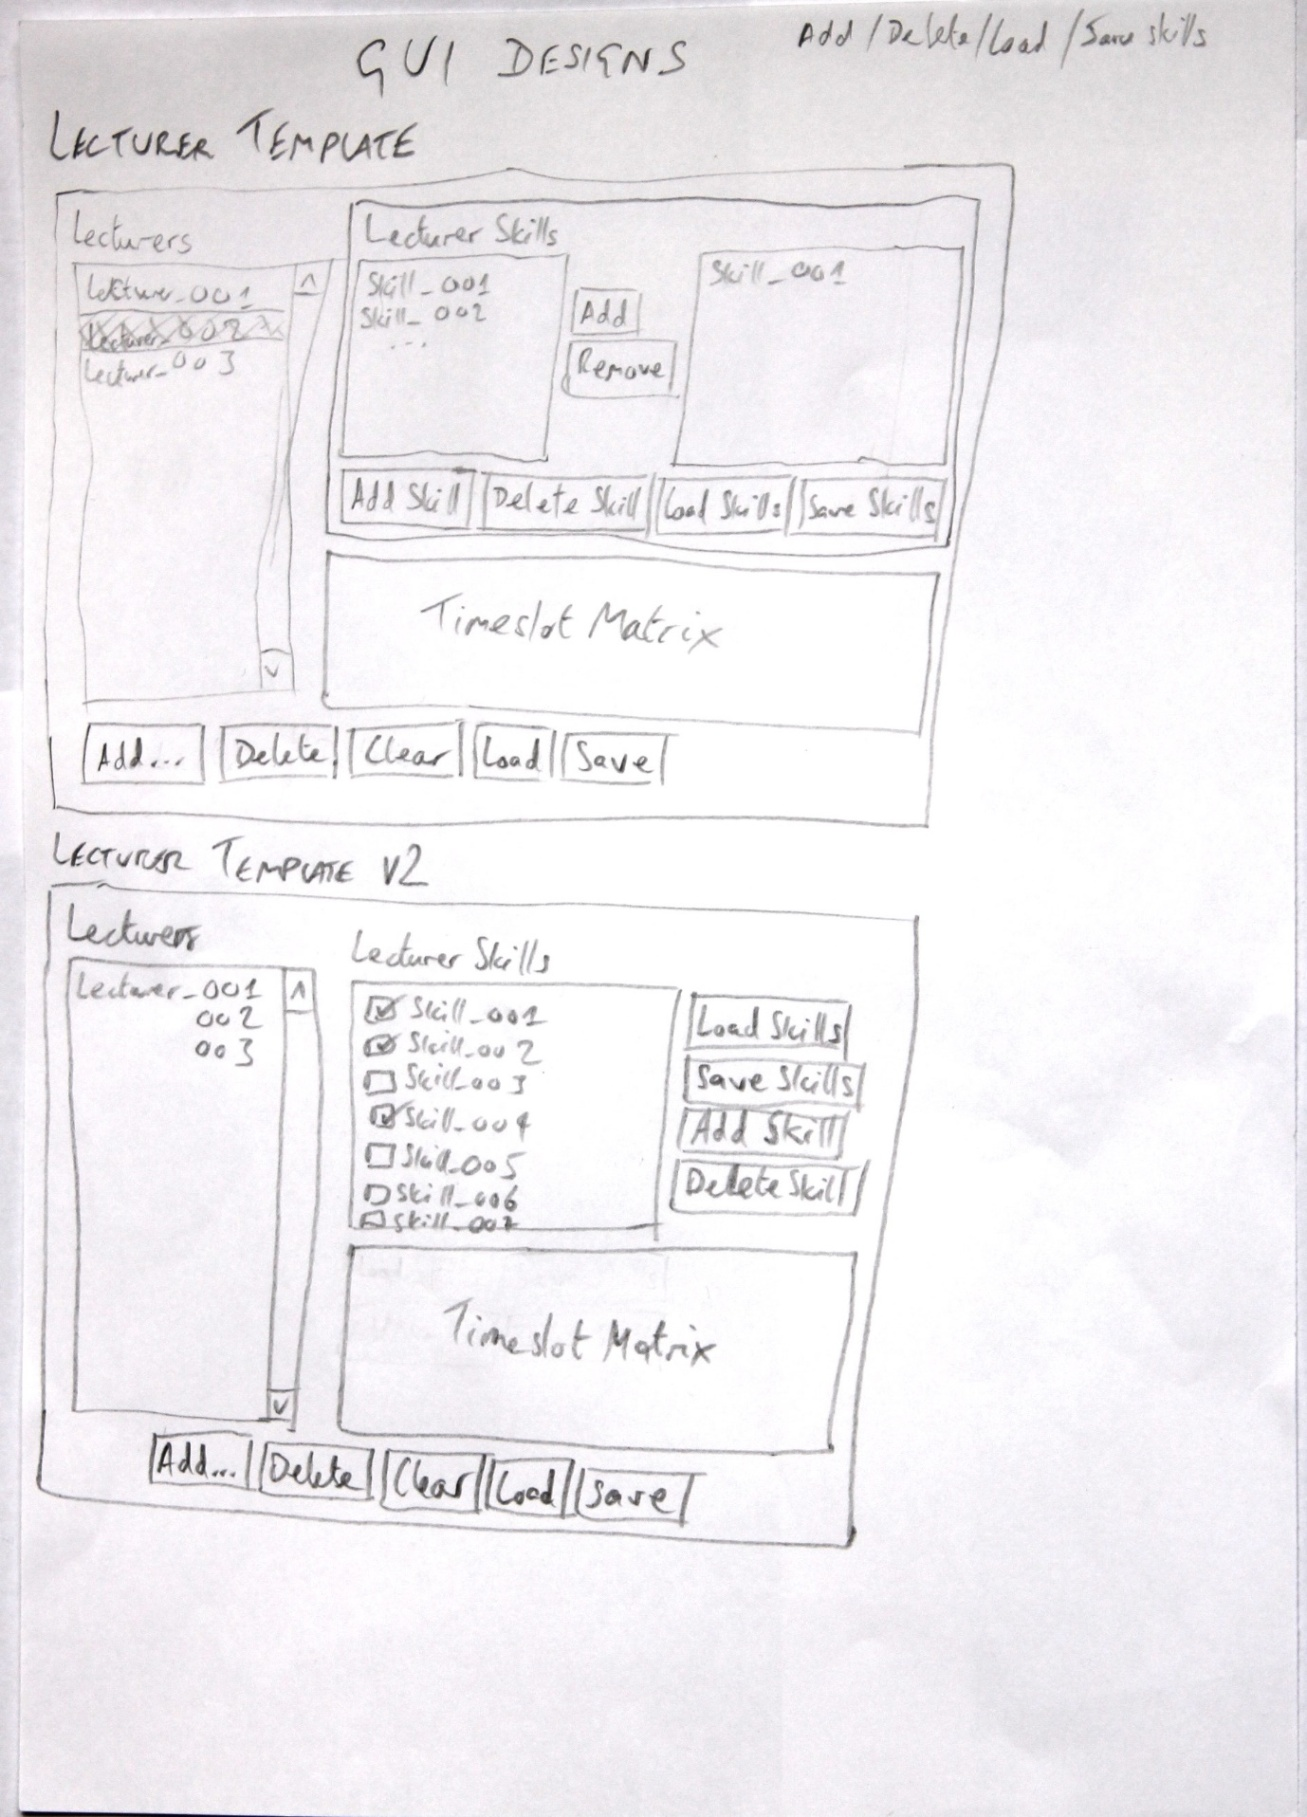 GUI DESIGNS
Add / Delete / Load / Save skills
LECTURER TEMPLATE
Lecturers
Lecturer_001
Lecturer_002
Lecturer_003
Lecturer Skills
Skill_001
Skill_002
...
Add
Remove
Skill_001
Add Skill
Delete Skill
Load Skills
Save Skills
Timeslot Matrix
Add...
Delete
Clear
Load
Save
LECTURER TEMPLATE V2
Lecturers
Lecturer_001
002
003
Lecturer Skills
Skill_001
Skill_002
Skill_003
Skill_004
Skill_005
Skill_006
Skill_007
Load Skills
Save Skills
Add Skill
Delete Skill
Timeslot Matrix
Add...
Delete
Clear
Load
Save